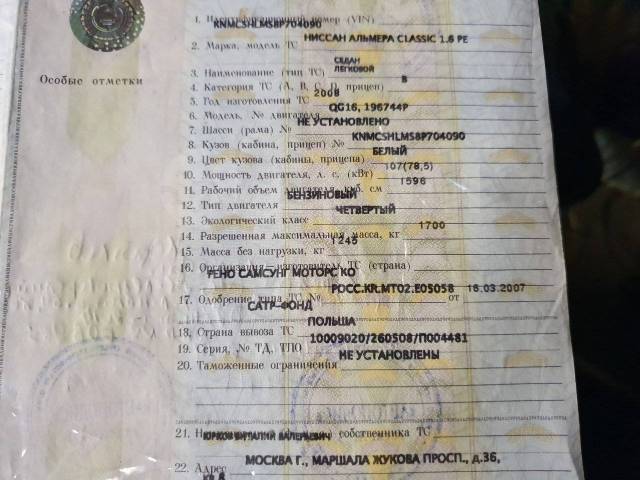 1. Идентификационный номер (VIN) KNMCSHLMS8P704090
2. Марка, модель ТС НИССАН АЛЬМЕРА CLASSIC 1.6 PE
Особые отметки
СЕДАН
3. Наименование (тип ТС) ЛЕГКОВОЙ
4. Категория ТС (А, В, С, D, прицеп) В
5. Год изготовления ТС 2008
6. Модель, № двигателя QG16, 196744P
7. Шасси (рама) № НЕ УСТАНОВЛЕНО
8. Кузов (кабина, прицеп) № KNMCSHLMS8P704090
9. Цвет кузова (кабины, прицепа) БЕЛЫЙ
10. Мощность двигателя, л. с. (кВт) 107(78,5)
11. Рабочий объем двигателя, куб. см 1596
12. Тип двигателя БЕНЗИНОВЫЙ
13. Экологический класс ЧЕТВЕРТЫЙ
14. Разрешенная максимальная масса, кг 1700
15. Масса без нагрузки, кг 1245
16. Организация-изготовитель ТС (страна)
РЕНО САМСУНГ МОТОРС КО
17. Одобрение типа ТС № РОСС.KR.MT02.E05058 от 16.03.2007
САТР-ФОНД
18. Страна вывоза ТС ПОЛЬША
19. Серия, № ТД, ТПО 10009020/260508/П004481
20. Таможенные ограничения НЕ УСТАНОВЛЕНЫ
21. ВИТАЛИЙ ВАЛЕРЬЕВИЧ собственника ТС
22. Адрес МОСКВА Г., МАРШАЛА ЖУКОВА ПРОСП., д.36,